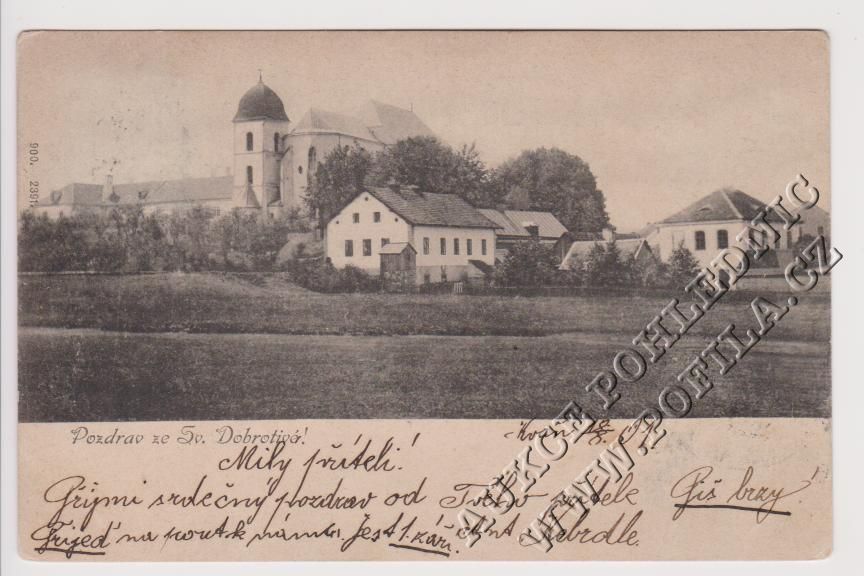 900. 2391.
AUKCE POHLEDNIC
WWW.POFILA.CZ
Pozdrav ze Sv. Dobrotivé!
18/8. 
Milý příteli!
Přijmi srdečný pozdrav od Tvého
Piš brzy!
Přijeď na pouť k nám. Jest 1. září.